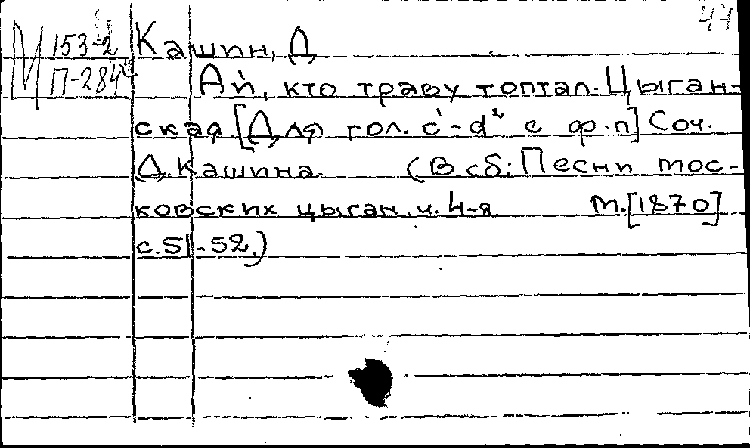 47
М 153-2
П-284
Кашин, Д
Ай, кто траву топтал. Цыган-
ская. [Для гол. c¹-d² с ф.п] Соч.
Д. Кашина. (В сб: Песни мос-
ковских цыган. ч. 4-я М. [1870]
с. 51-52.)